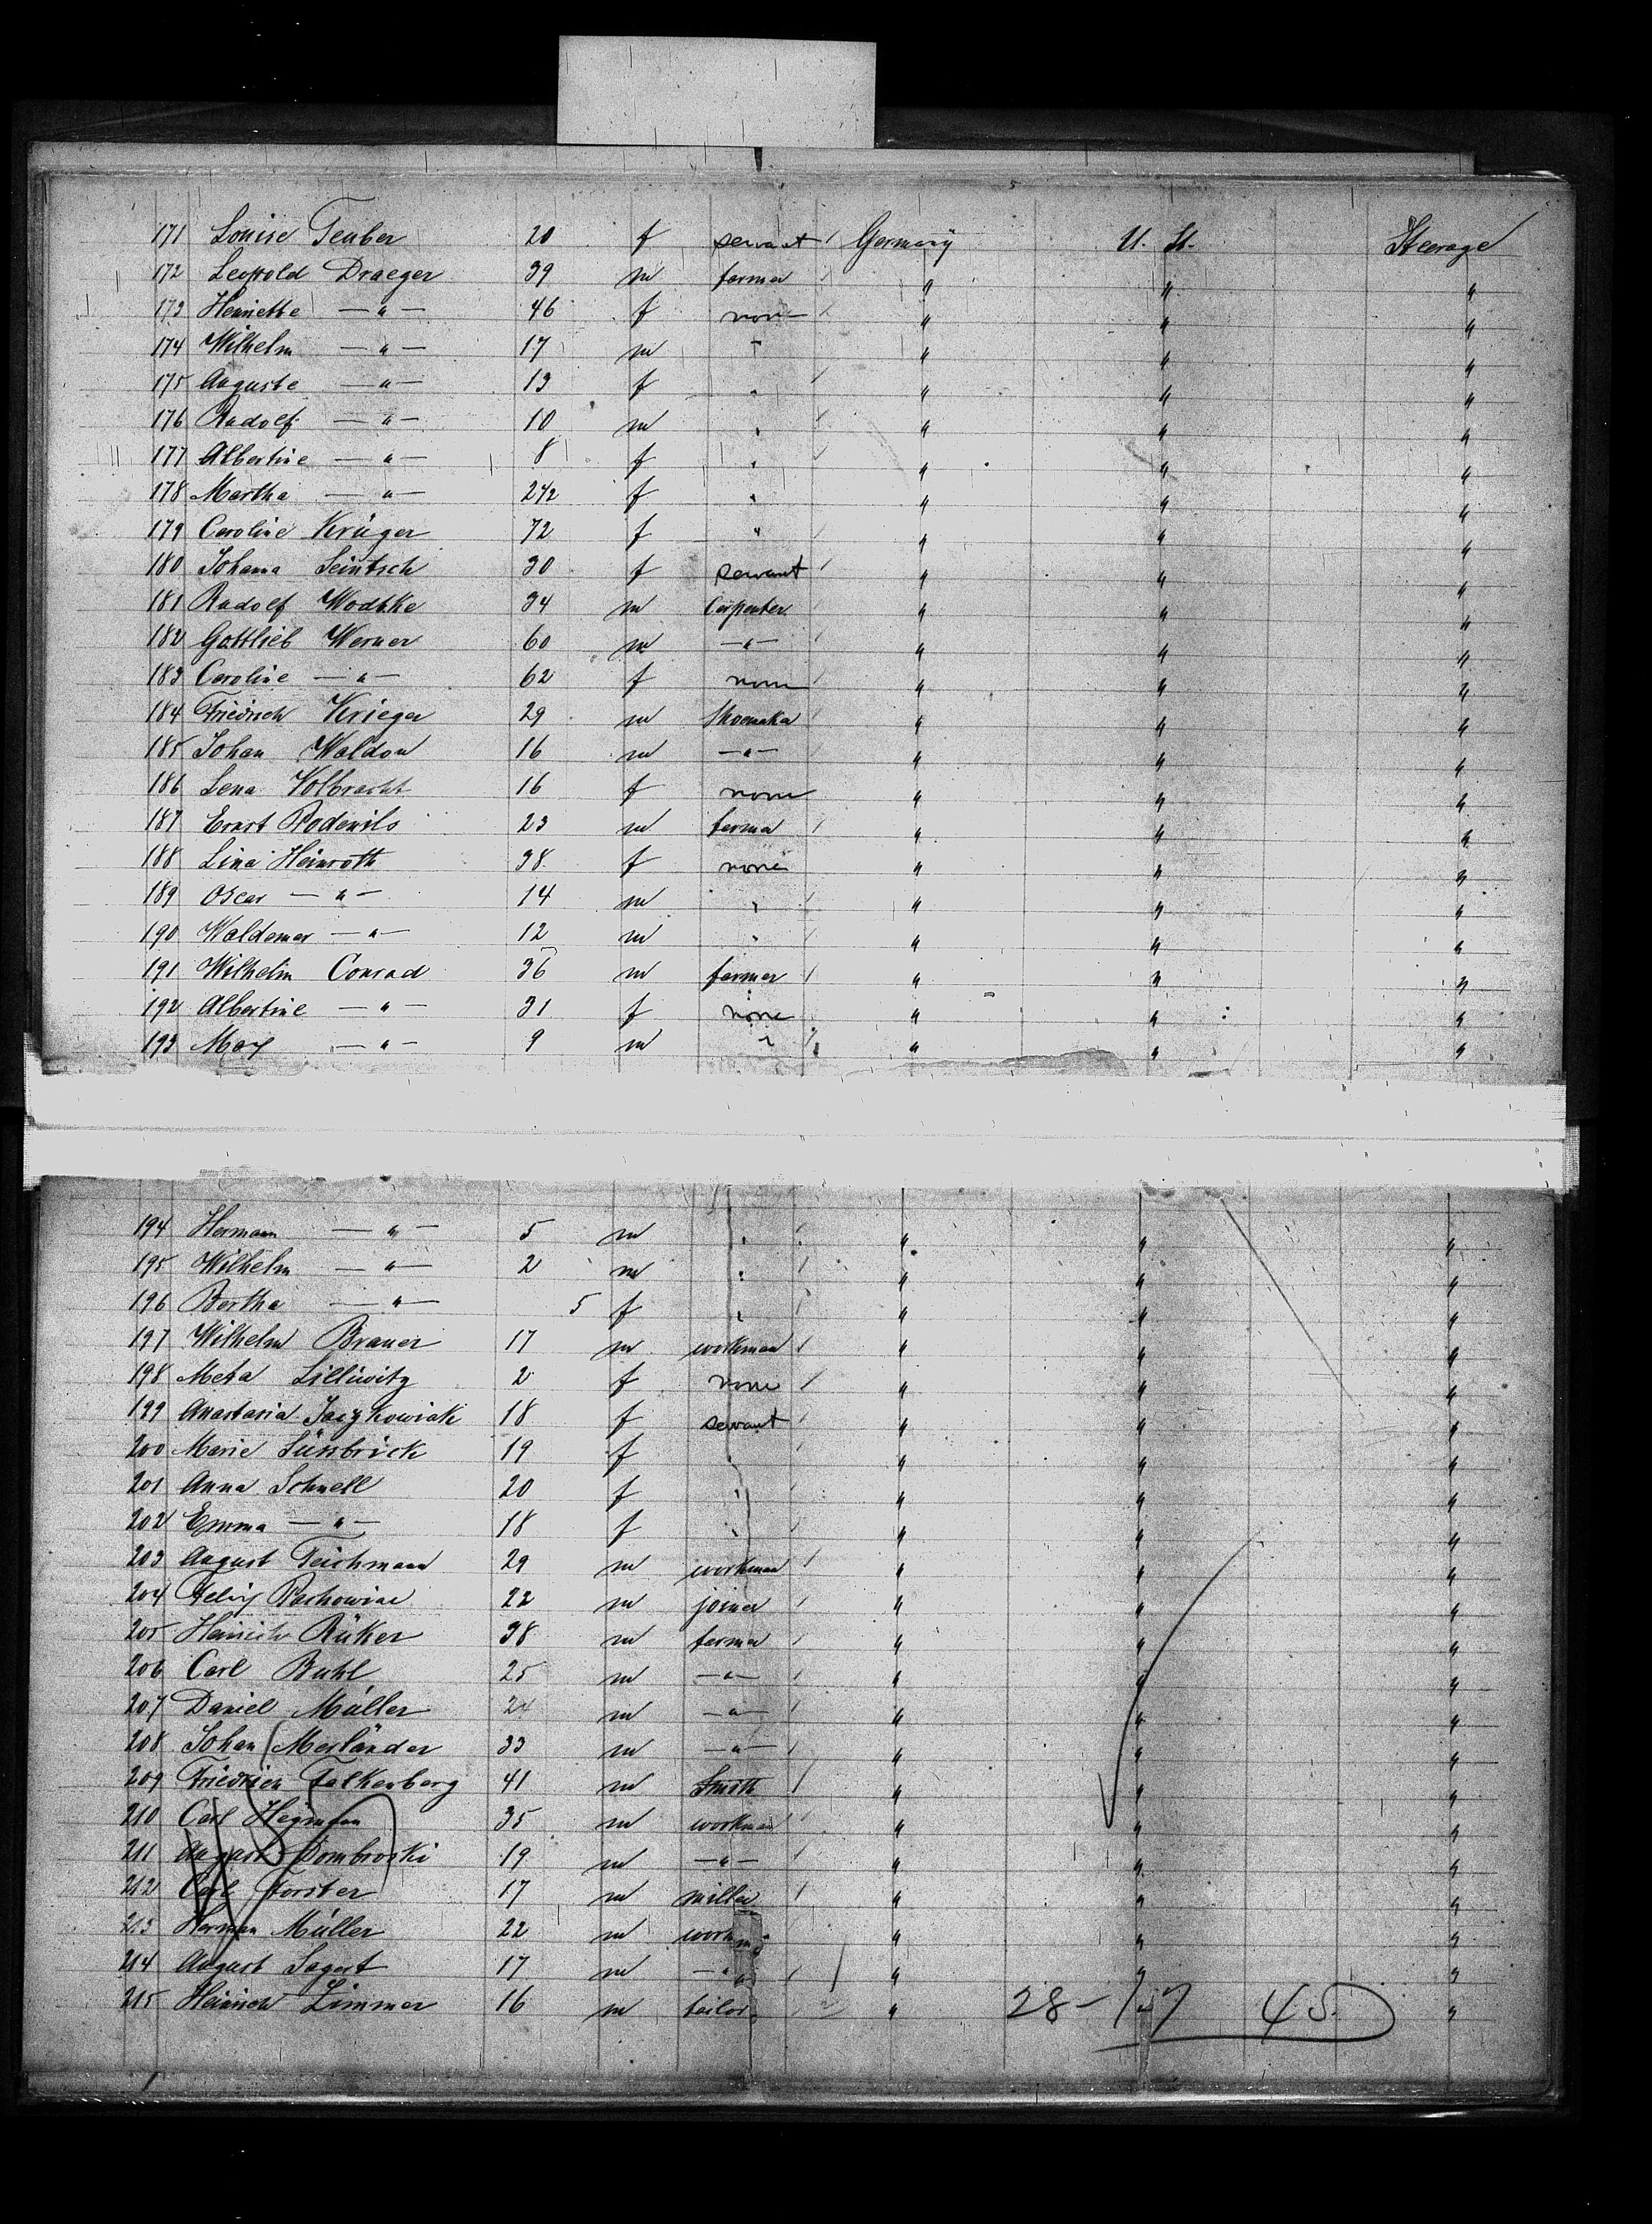 171 Louise Teuber 20 f servant / Germany U. St. Steerage
172 Leopold Draeger 39 m farmer / " " "
173 Henriette — " — 46 f none / " " "
174 Wilhelm — " — 17 m " " " "
175 Auguste — " — 13 f " / " " "
176 Rudolf — " — 10 m " / " " "
177 Albertine — " — 8 f " / " " "
178 Martha — " — 2 1/2 f " " " "
179 Caroline Krüger 72 f " / " " "
180 Johanna Leintsch 30 f servant / " " "
181 Rudolf Wodtke 34 m Carpenter / " " "
182 Gottlieb Werner 60 m — " — / " " "
183 Caroline — " — 62 f none / " " "
184 Friedrich Krieger 29 m Shoemaker / " " "
185 Johan Waldow 16 m — " — " " "
186 Lena Volbracht 16 f none " " "
187 Ernst Rodewils 23 m farmer / " " "
188 Lina Heinroth 38 f none " " "
189 Oscar — " — 14 m " / " " "
190 Waldemar — " — 12 m " / " " "
191 Wilhelm Conrad 36 m farmer / " " "
192 Albertine — " — 31 f none " " "
193 Max — " — 9 m " / " " "
194 Hermann — " — 5 m " / " " "
195 Wilhelm — " — 2 m " / " " "
196 Bertha — " — 5 f " / " " "
197 Wilhelm Brauer 17 m workman / " " "
198 Meta Lilliwitz 2 f none / " " "
199 Anastasia Jaczkowiak 18 f servant / " " "
200 Marie Süssbrick 19 f " / " " "
201 Anna Schnell 20 f " / " " "
202 Emma — " — 18 f " / " " "
203 August Teichmann 29 m workman / " " "
204 Felix 22 m joiner / " " "
205 Heinrich Rüker 38 m farmer / " " "
206 Carl Buhl 25 m — " — / " " "
207 Daniel Müller 24 m — " — / " " "
208 Johan Merländer 33 m — " — / " " "
209 Friedrich Falkenberg 41 m Smith / " " "
210 Carl Hegmann 35 m workman / " " "
211 August Dombroski 19 m — " — / " " "
212 Carl Forster 17 m miller / " " "
213 Herman Müller 22 m workm " " "
214 August Sagert 17 m — " — / " " "
215 Heinrich Zimmer 16 m tailor " 28 - 17 45 "